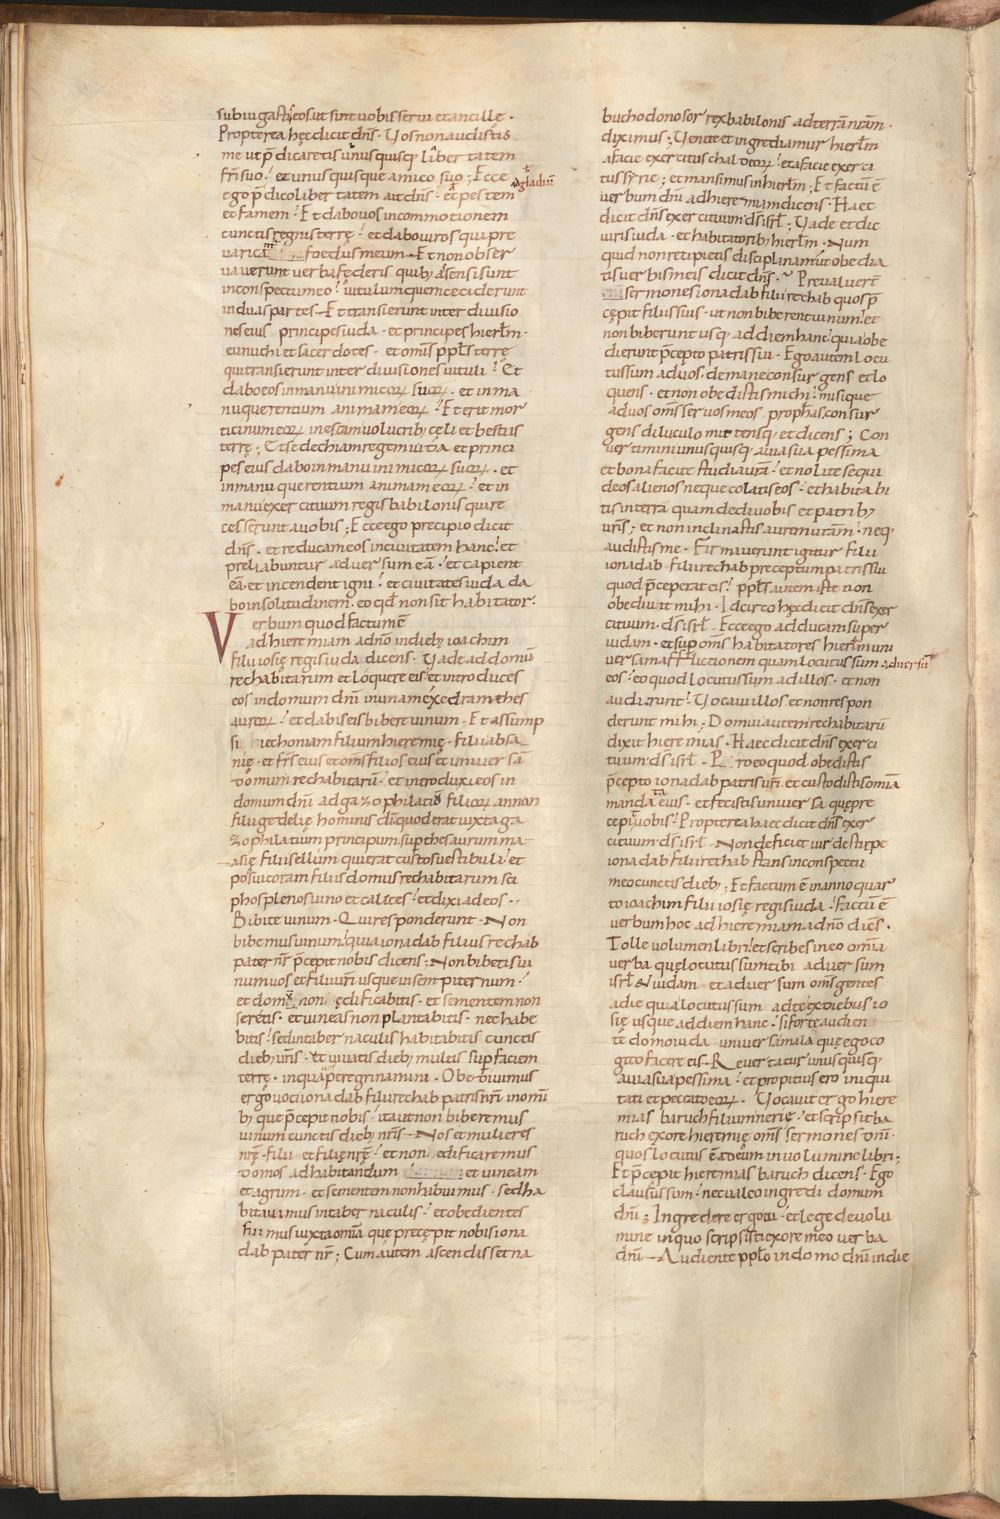 subiugastis eos. ut sint uobis serui et ancillę.
Propterea hęc dicit dñs. Uos non audistis
me ut p̄dicaretis unusquisq; libertatem
fri suo. et unusquisque amico suo; Ecce
ego p̄dico libertatem ait dñs. et pestem
ad gladiū
et famem. Et dabo uos in commotionem
cunctis regnis terrę. et dabo uiros qui pre
uaricant foedus meum. Et non obser
uauerunt uerba fęderis quib; assensi sunt
in conspectu meo. uitulum quem ceciderunt
in duas partes. Et transierunt inter diuisio
nes eius principes iuda. et principes hierłm.
eunuchi et sacerdotes. et om̄s ppłs terrę
qui transierunt inter diuisiones uituli. Et
dabo eos in manu inimicoꝝ suoꝝ. et in ma
nu querentium animam eoꝝ. Et erit mor
ticinum eoꝝ in escam uolucrib; cęli et bestiis
terrę; Et sedechiam regem iuda et princi
pes eius dabo in manu inimicoꝝ suoꝝ. et
in manu querentium animam eoꝝ. et in
manu exercituum regis babilonis qui re
cesserunt a uobis; Ecce ego precipio dicit
dñs. et reducam eos in ciuitatem hanc. et
preliabuntur aduersum eā. et capient
eā. et incendent igni. et ciuitates iuda da
bo in solitudinem. eo qđ non sit habitator.
Verbum quod factum ē
ad hieremiam a dño in dieb; ioachim
filii iosię regis iuda. dicens. Uade ad domū
rechabitarum et loquere eis. et introduces
eos in domum dñi in unam exedram thes
auroꝝ. et dabis eis bibere uinum. Et assump
si iechoniam filium hieremię. filii absa
nię. et frs eius et om̄s filios eius et uniuersā
domum rechabitarū. et introduxi eos in
domum dñi ad gazophilatiū filioꝝ annon
filii gedelię hominis dī. quod erat iuxta ga
zophilatium principum. sup thesaurum ma
asię filii sellum qui erat custos uestibuli. et
posui coram filiis domus rechabitarum sci
phos plenos uino et calices. et dixi ad eos.
Bibite uinum. Qui responderunt. Non
bibemus uinum. quia ionadab filius rechab
pater nr̄ p̄cepit nobis dicens; Non bibetis ui
num uos et filii uri usque in sempiternum.
et domū non ędificabitis. et sementem non
seretis. et uineas non plantabitis. nec habe
bitis. sed in tabernaculis habitabitis cunctis
dieb; uris. ut uiuatis dieb; multis sup faciem
terrę. in qua uos peregrinamini. Obediuimus
ergo uoci ionadab filii rechab patris nri in omni
b; que p̄cepit nobis. ita ut non biberemus
uinum cunctis dieb; nris. Nos et mulieres
nrę. filii et filię nrę. et non edificaremus
domos ad habitandum et uineam
et agrum. et sementem non habuimus. sed ha
bitauimus in tabernaculis. et obedientes
fuimus iuxta omia que precępit nobis iona
dab pater nr̄; Cum autem ascendisset na
buchodonosor rex babilonis ad terrā nrām.
diximus; Uenite et ingrediamur hierłm
a facie exercitus chaldeoꝝ. et a facie exerci
tus syrię; et mansimus in hierłm; Et factū ē
uerbum dñi ad hieremiam dicens. Haec
dicit dñs exercituum ds isrł; Uade et dic
uiris iuda. et habitatorib; hierłm. Num
quid non recipietis disciplinam. ut obedia
tis uerbis meis dicit dñs. Preualuerū
sermones ionadab filii rechab quos p̄
cępit filiis suis. ut non biberent uinum. et
non biberunt usq; ad diem hanc. quia obe
dierunt p̄cepto patris sui. Ego autem locu
tus sum ad uos. de mane consurgens et lo
quens. et non obedistis michi. misique
ad uos om̄s seruos meos prophas. consur
gens diluculo mittensq; et dicens; Con
uertimini unusquisq; a uia sua pessima
et bona facite studia urā. et nolite sequi
deos alienos neque colatis eos. et habitabi
tis in terra quam dedi uobis et patrib;
uris; et non inclinastis aurem urām. neq;
audistis me. Firmauerunt igitur filii
ionadab filii rechab preceptum patris sui
quod p̄ceperat eis. ppłs autem iste non
obediuit mihi. Idcirco hęc dicit dñs exer
cituum. ds isrł. Ecce ego adducam super
iudam. et sup om̄s habitatores hierłm uni
uersam afflictionem quam locutus sum aduersū
eos. eo quod locutus sum ad illos. et non
audierunt. Uocaui illos et non respon
derunt mihi; Domui autem rechabitarū
dixit hieremias. Haec dicit dñs exerci
tuum. ds isrł. Pro eo quod obedistis
p̄cepto ionadab patris uri. et custodistis omia
mandata eius. et fecistis uniuersa que pre
cepit uobis. Propterea haec dicit dñs exer
cituum ds isrł. Non deficiet uir de stirpe
ionadab filii rechab stans in conspectu
meo cunctis dieb; Et factum ē in anno quar
to ioachim filii iosię regis iuda. factū ē
uerbum hoc ad hieremiam a dño diēs.
Tolle uolumen libri. et scribes in eo omia
uerba quę locutus sum tibi aduersum
isrł & iudam. et aduersum om̄s gentes
a die qua locutus sum ad te ex diebus io
się usque ad diem hanc. si forte audien
te domo iuda uniuersa mala quę ego co
gito facere eis. Reuertatur unusquisq;
a uia sua pessima. et propitius ero iniqui
tati et peccato eoꝝ. Uocauit ergo hiere
mias baruch filium nerię. et scripsit ba
ruch ex ore hieremię om̄s sermones dñi.
quos locutus ē ad eum in uolumine libri;
Et p̄cepit hieremias baruch dicens. Ego
clausus sum. nec ualeo ingredi domum
dñi; Ingredere ergo tu. et lege de uolu
mine in quo scripsisti ex ore meo uerba
dñi. Audiente ppło in domo dñi in die